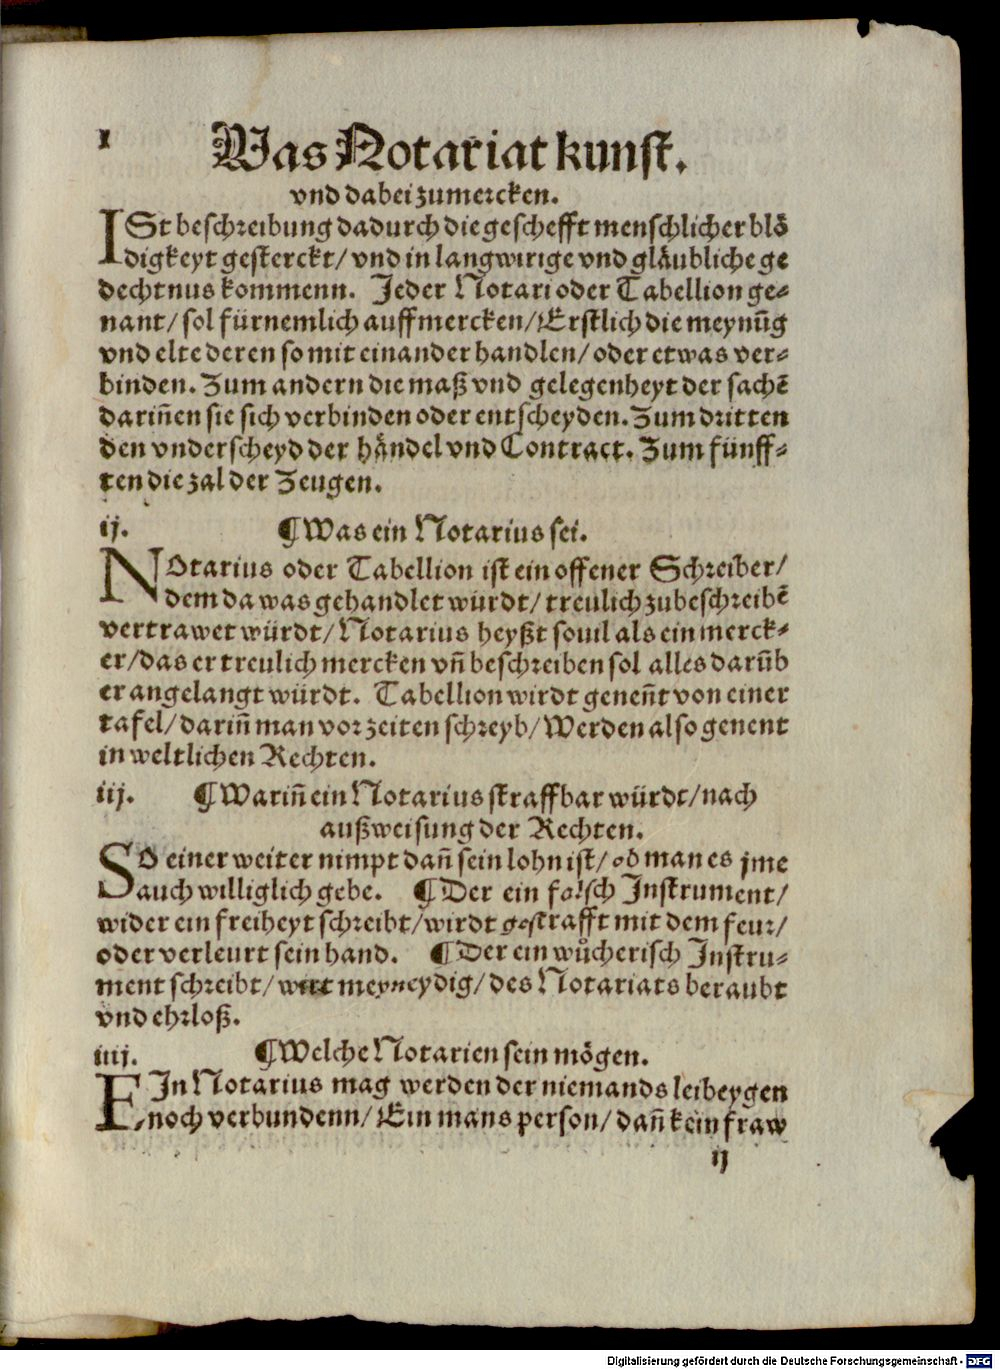 I Was Notariat kunst.
vnd dabei zumercken.
ISt beschreibung dadurch die geschefft menschlicher blö
digkeyt gesterckt/ vnd in langwirige vnd gläubliche ge
dechtnus kommenn. Jeder Notari oder Tabellion ge⸗
nant/ sol fürnemlich auffmercken/ Erstlich die meynūg
vnd elte deren so mit einander handlen/ oder etwas ver⸗
binden. Zum andern die maß vnd gelegenheyt der sachē
dariñen sie sich verbinden oder entscheyden. Zum dritten
den vnderscheyd der händel vnd Contract. Zum fünff⸗
ten die zal der Zeugen.
ij. ¶ Was ein Notarius sei.
NOtarius oder Tabellion ist ein offener Schreiber/
dem da was gehandlet würdt/ treulich zubeschreibē
vertrawet würdt/ Notarius heyßt souil als ein merck⸗
er/ das er treulich mercken vñ beschreiben sol alles darūb
er angelangt würdt. Tabellion wirdt geneñt von einer
tafel/ dariñ man vor zeiten schreyb/ Werden also genent
in weltlichen Rechten.
iij. ¶ Wariñ ein Notarius straffbar würdt/ nach
außweisung der Rechten.
SO einer weiter nimpt dañ sein lohn ist/ ob man es jme
auch williglich gebe. ¶ Der ein falsch Instrument/
wider ein freiheyt schreibt/ wirdt gestrafft mit dem feur/
oder verleurt sein hand. ¶ Der ein wůcherisch Instru⸗
ment schreibt/ wirt meyneydig/ des Notariats beraubt
vnd ehrloß.
iiij. ¶ Welche Notarien sein mögen.
EIn Notarius mag werden der niemands leibeygen
noch verbundenn/ Ein mans person/ dañ kein fraw
ij
Digitalisierung gefördert durch die Deutsche Forschungsgemeinschaft - DFG